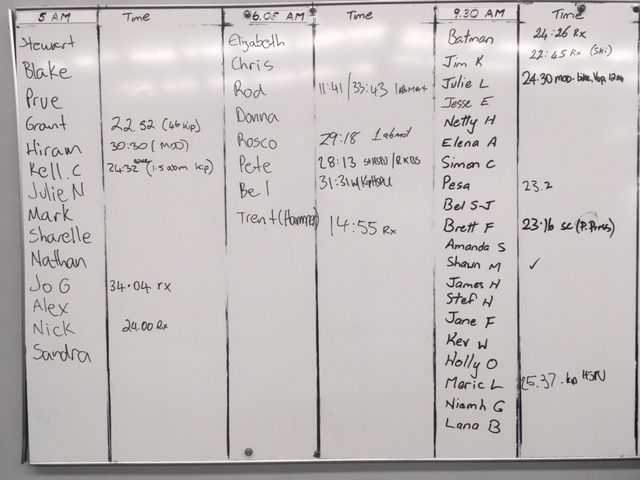 5 AM Time
Stewart
Blake
Prue
Grant 22.52 (46 kip)
Hiram 30:30 (MOD)
Kell.C 24:32 (1.5 abm kip)
Julie N
Mark
Sharelle
Nathan
Jo G 34.04 rx
Alex
Nick 24.00 Rx
Sandra
6.05 AM Time
Elizabeth
Chris
Rod 11:41/33:43 1 abmat
Donna
Rosco 29:18 1 abmat
Pete 28:13
Bel 31:31
Trent (Hammer) 14:55 Rx
9.30 AM Time
Batman 24:26 Rx
Jim K 22:45 Rx (Ski)
Julie L 24:30 MOD-bike
Jesse E
Netty H
Elena A
Simon C
Pesa 23.2
Bel S-J
Brett F 23.16 sc (P.Press)
Amanda S
Shaun M ✓
James H
Stef H
Jane F
Kev W
Holly O
Maric L 25.37
Niamh G
Lana B